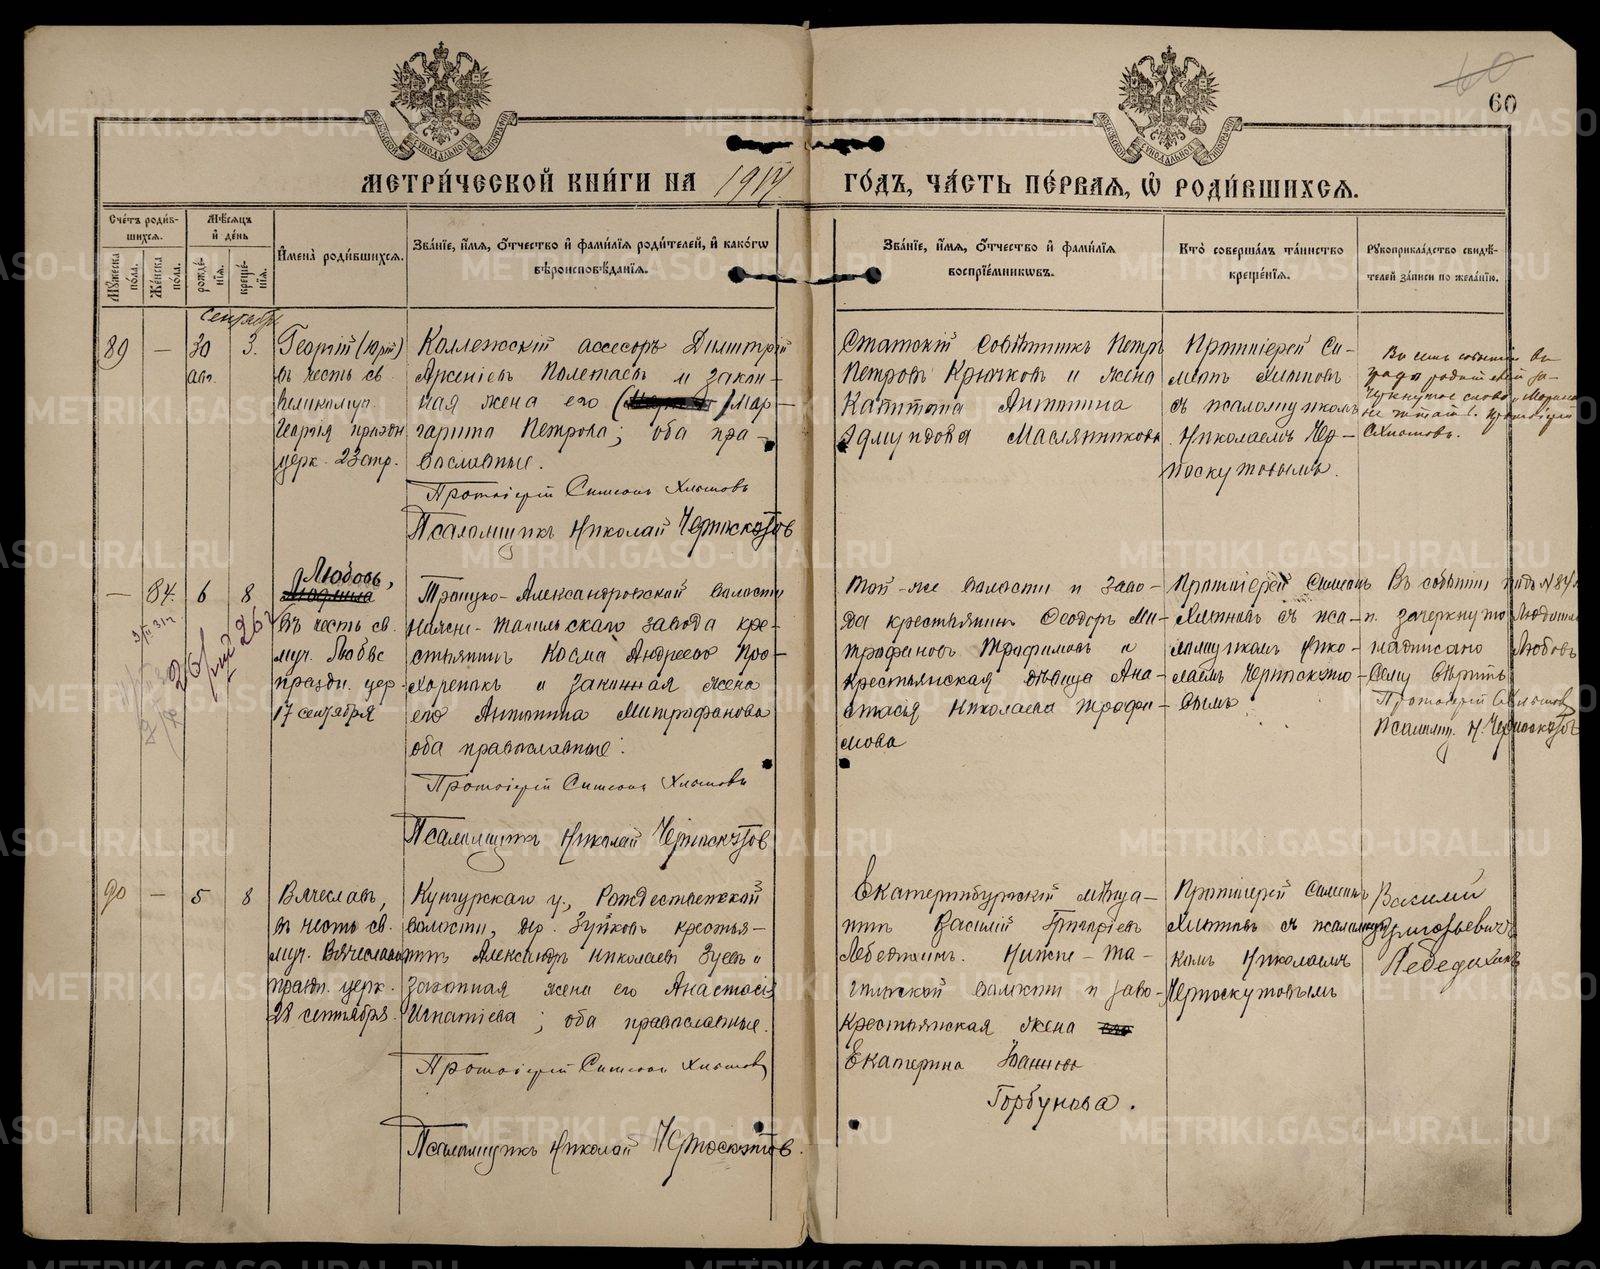 60
60
МЕТРИЧЕСКОЙ КНИГИ НА 1914 ГОДЪ, ЧАСТЬ ПЕРВАЯ, Ѡ РОДИВШИХСЯ.
Счетъ родив-
шихся.
Мужеска пола.
Женска пола.
Мѣсяцъ
и день
рожде-
нія.
креще-
нія.
Имена родившихся.
Званіе, имя, отчество и фамилія родителей, и какогѡ
вѣроисповѣданія.
Званіе, имя, отчество и фамилія
воспріемниковъ.
Кто совершалъ таинство
крещенія.
Рукоприкладство свидѣ-
телей записи по желанію.
Сентябрь
89
—
30
авг.
3.
Георгій (Юрій)
въ честь св.
великомуч.
Георгія праздн.
церк. 23 апр.
Коллежскій ассесоръ Димитрій
Арсеніевъ Полетаевъ и закон-
ная жена его Мар-
гарита Петрова; оба пра-
вославные.
Протоіерей Симеонъ Хлыновъ
Псаломщикъ Николай Черноскутовъ
Статскій Совѣтникъ Петръ
Петровъ Крючковъ и жена
Капитана Антонина
Эдмундова Маслянникова
Протоіерей Си-
меонъ Хлыновъ
съ псаломщикомъ
Николаемъ Чер-
носкутовымъ.
Въ семъ событіи въ
графѣ родителей за-
черкнутое слово
не читать. Протоіерей
С. Хлыновъ.
—
84.
6
8
Любовь,
Людмила
въ честь св.
муч. Любве
праздн. цер.
17 сентября
Троицко-Александровской волости
Нижне-Тагильскаго завода кре-
стьянинъ Косма Андреевъ Про-
хоренокъ и законная жена
его Антонина Митрофанова
оба православные.
Протоіерей Симеонъ Хлыновъ
Псаломщикъ Николай Черноскутовъ
Той-же волости и заво-
да крестьянинъ Ѳеодоръ Ми-
трофановъ Трофимовъ и
крестьянская дѣвица Ана-
стасія Николаева Трофи-
мова
Протоіерей Симеонъ
Хлыновъ съ пса-
ломщикомъ Нико-
лаемъ Черноскуто-
вымъ
Въ событіи подъ № 84 ж.
п. зачеркнуто Людмила
надписано Любовь
Сему вѣрить
Протоіерей С. Хлыновъ
Псаломщ. Н. Черноскутовъ
90
—
5
8
Вячеславъ,
въ честь св.
муч. Вячеслава
праздн. церк.
28 сентября.
Кунгурскаго у., Рождественской
волости, дер. Зуйковъ крестья-
нинъ Александръ Николаевъ Зуевъ и
законная жена его Анастасія
Игнатіева; оба православные.
Протоіерей Симеонъ Хлыновъ
Псаломщикъ Николай Черноскутовъ.
Екатеринбургскій мѣща-
нинъ Василій Григорьевъ
Лебедкинъ. Нижне-Та-
гильской волости и заво-
крестьянская жена
Екатерина
Горбунова.
Протоіерей Симеонъ
Хлыновъ съ псаломщи-
комъ Николаемъ
Черноскутовымъ
Василій
Григорьевичъ
Лебедкинъ
METRIKI.GASO-URAL.RU